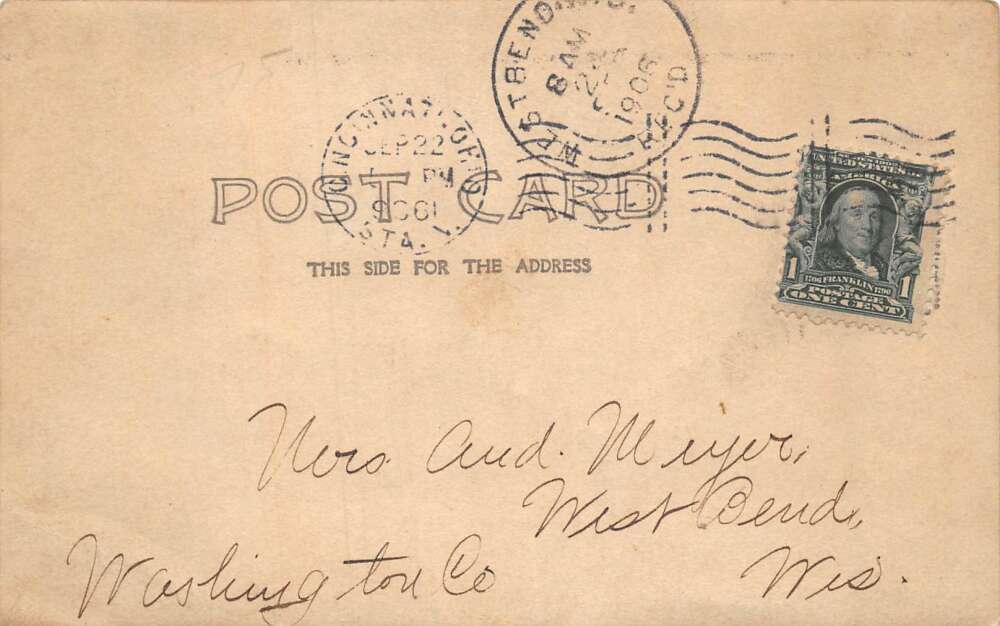 WEST BEND, WIS.
8 AM
1906
REC'D
CINCINNATI, OHIO
SEP 22
PM
1906
STA. V.
POST CARD
THIS SIDE FOR THE ADDRESS
UNITED STATES OF AMERICA
1 1706 FRANKLIN 1790 1
POSTAGE
ONE CENT
Mrs. And. Meyer,
West Bend,
Washington Co Wis.